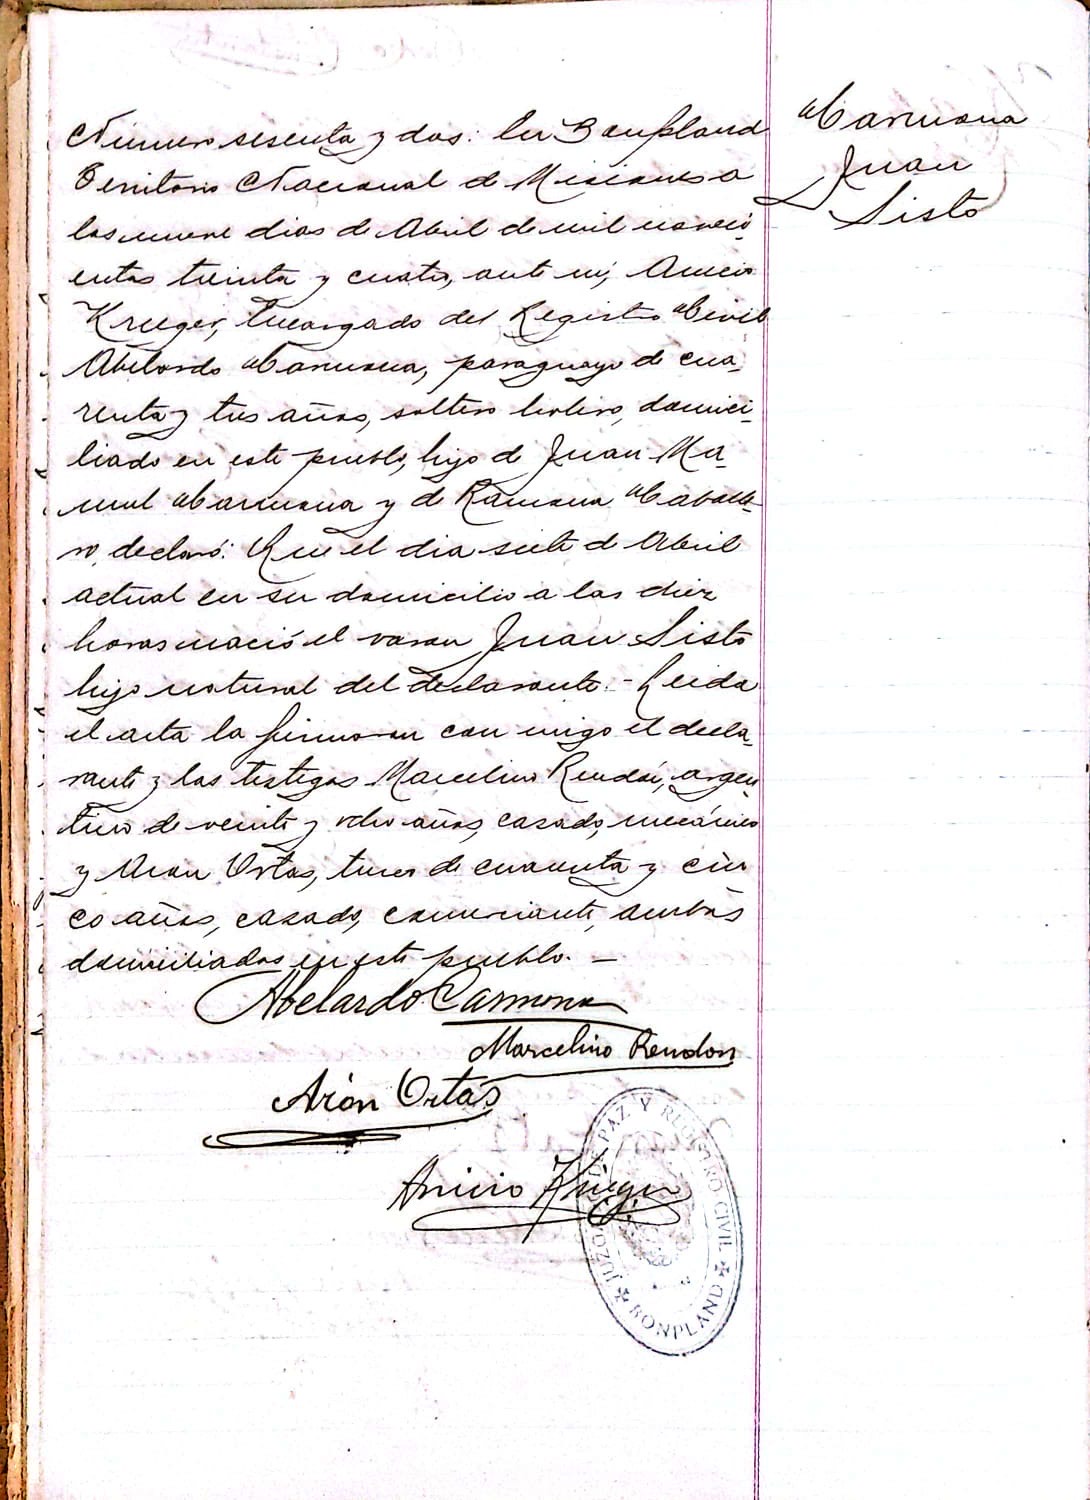 Carmona
Juan
Sisto
Número sesenta y dos: En Bonpland
Territorio Nacional de Misiones a
los nueve dias de Abril de mil noveci-
entos treinta y cuatro, ante mi, Anicio
Krieger, Encargado del Registro Civil
Abelardo Carmona, paraguayo de cua-
renta y tres años, soltero, domici-
liado en este pueblo, hijo de Juan Ma-
nuel Carmona y de Ramona Caballe-
ro, declaró: Que el dia siete de Abril
actual en su domicilio a las diez
horas nació el varon Juan Sisto
hijo natural del declarante.- Leida
el acta la firmaron con migo el decla-
rante y los testigos Marcelino Rendón, argen-
tino de veinte y ocho años, casado, mecánico
y Arón Ortas, de cuarenta y cin-
co años, casado, comerciante, ambos
domiciliados en este pueblo. —
Abelardo Carmona
Marcelino Rendon
Arón Ortas
Anicio Krieger
JUZGADO DE PAZ Y REGISTRO CIVIL
BONPLAND